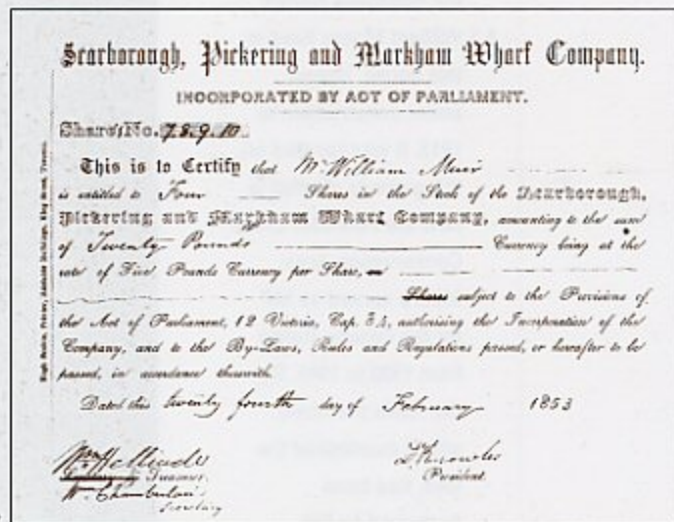 Scarborough, Pickering and Markham Wharf Company.
INCORPORATED BY ACT OF PARLIAMENT.
Shares, No. 7.8.9.10.
This is to Certify that Mr William Muir
is entitled to Four Shares in the Stock of the Scarborough,
Pickering and Markham Wharf Company, amounting to the sum
of Twenty Pounds Currency being at the
rate of Five Pounds Currency per Share, or
Shares subject to the Provisions of
the Act of Parliament, 12 Victoria, Cap. 84, authorising the Incorporation of the
Company, and to the By-Laws, Rules and Regulations passed, or hereafter to be
passed, in accordance therewith.
Dated this twenty fourth day of February 1853
Wm Helliwell
Treasurer
W. Chamberlain
Secretary
L Knowles
President.
Printer, Adelaide Buildings, King Street, Toronto.